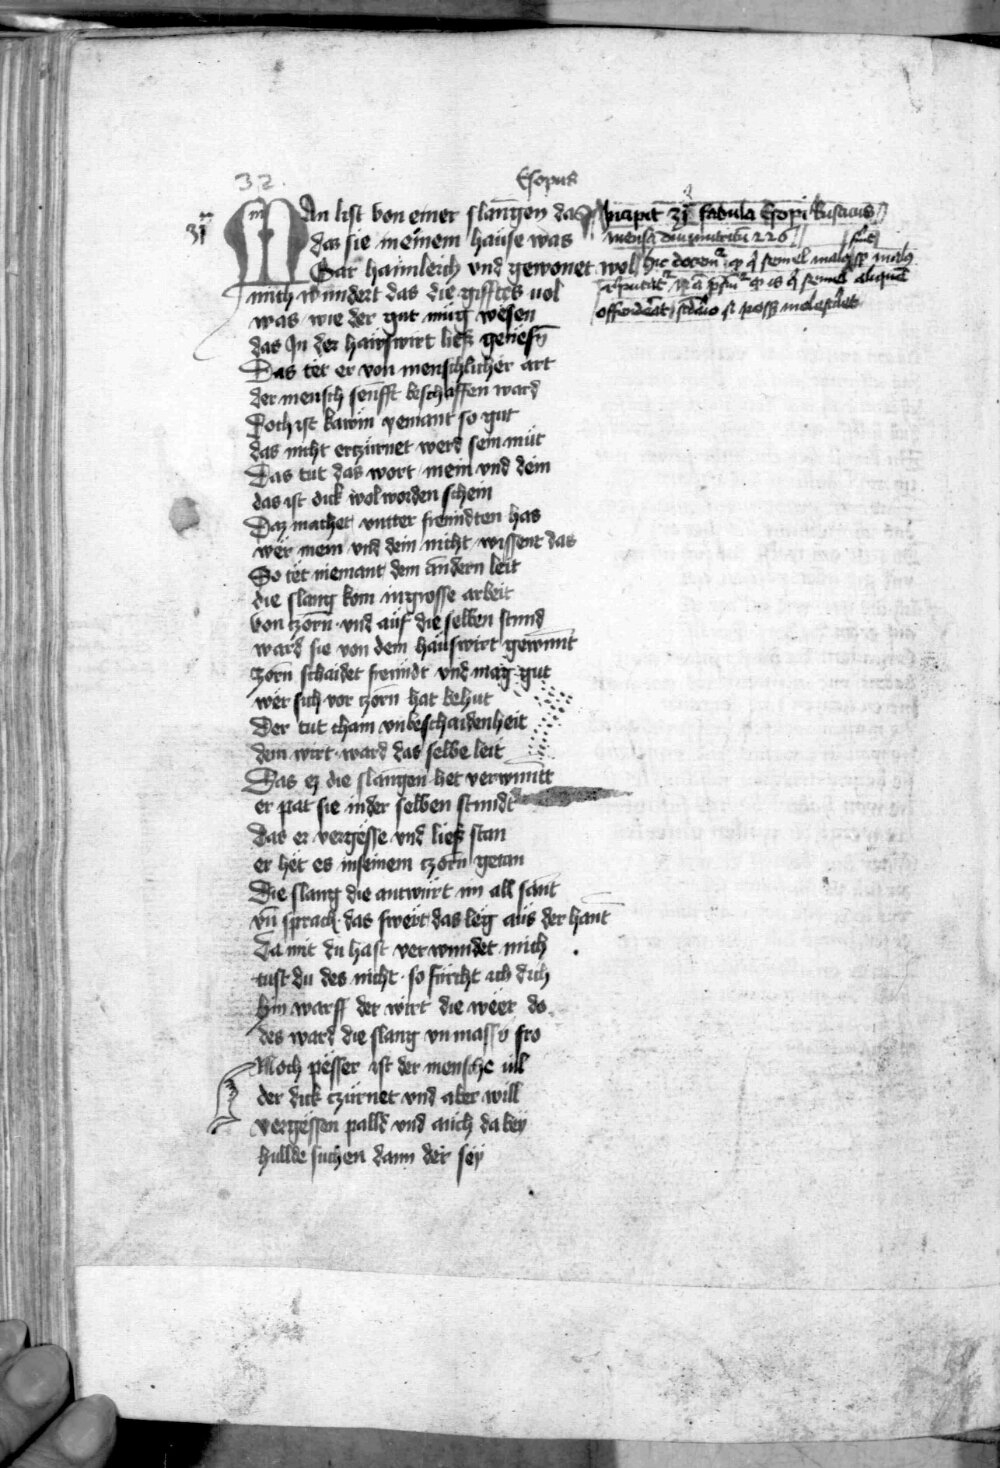 32.
Esopus
31
MAn list von einer slangen das
das sie meinem hause was
Gar haimleich vnd gewonet wol
mich wundert das die gifftes vol
was wie der gut mug wesen
das In der hauswirt liesz genesn̄
Das tet er von menschlicher art
der mensch senfft beschaffen ward
Doch ist kawm yemant so gut
das nicht erczürnet werd sein müt
Das tut das wort mein vnd dein
das ist dick wol worden schein
Daz machet vntter freundten has
wer mein vnd dein nicht wissent das
So tet niemant dem andern leit
die slang kom in grosse arbeit
von zorn vnd auf die selben stund
ward sie von dem hauswirt gewunnt
zorn schaidet freundt vnd mag gut
wer sich vor zorn hat behut
Der tut cham vnbeschaidenheit
dem wirt ward das selbe leit
Das er die slangen het verwuntt
er pat sie in der selben stundt
Das er vergesse vnd liesz stan
er het es in seinem czorn getan
Die slang die antwurt im all sant
vn̄ sprach das swert das leg aus der hant
Da mit du hast verwundet mich
tust du des nicht so fürcht ich dich
hin warff der wirt die weer do
des ward die slang vnmassn̄ fro
Noch pesser ist der mensche vil
der dick czürnet vnd aber will
vergessen palld vnd auch da bey
hullde suchen dann der sey
Incipit 31 fabula Esopi Rusticus
mensa
hic docem² semel malus
semel aliquem
offenderit